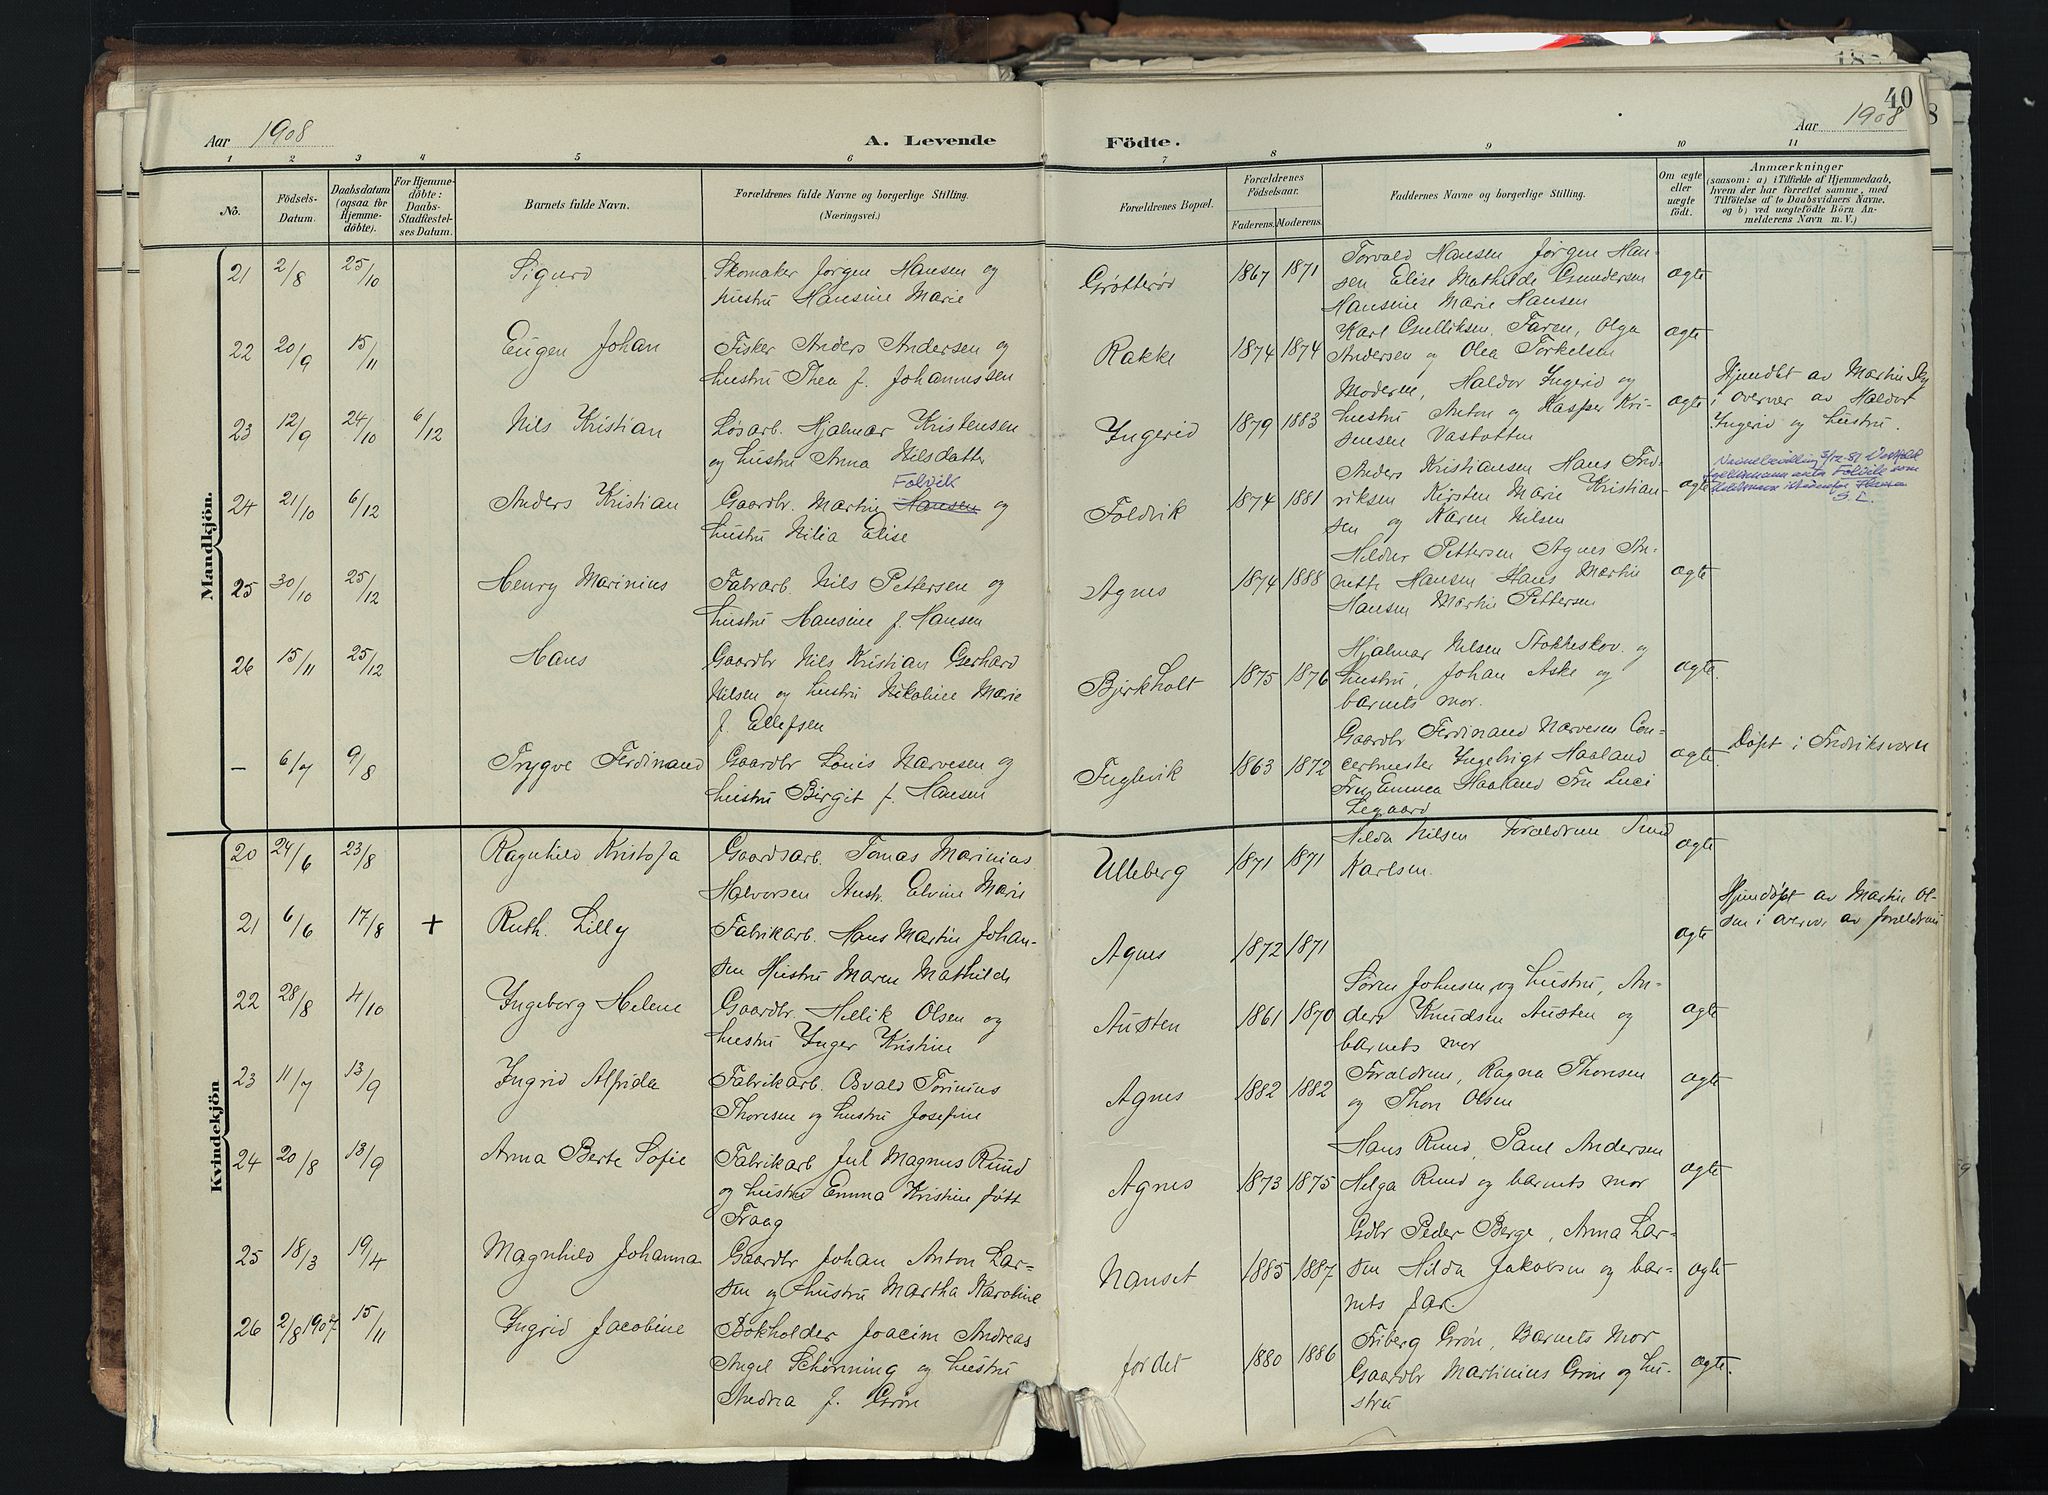 40
Aar 1908
A. Levende
Födte.
Aar 1908
1 2 3 4 5 6 7 8 9 10 11
No.
Födsels-
Datum.
Daabsdatum
(ogsaa for
Hjemme-
döbte).
For Hjemme-
döbte:
Daabs-
Stadfæstel-
ses Datum.
Barnets fulde Navn.
Forældrenes fulde Navne og borgerlige Stilling.
(Næringsvei.)
Forældrenes Bopæl.
Forældrenes
Födselsaar.
Faderens. Moderens.
Faddernes Navne og borgerlige Stilling.
Om ægte
eller
uægte
født.
Anmærkninger
(saasom: a) i Tilfælde af Hjemmedaab,
hvem der har forrettet samme, med
Tilföielse af to Daabsvidners Navne.
og b) ved uægtefödte Börn An-
melderens Navn m. V.)
Mandkjön.
21 2/8 25/10 Sigurd
Skomaker Jørgen Hansen og
hustru Hansine Marie
Grøtterød 1867 1871
Torvald Hansen Jørgen Han-
sen Elise Mathilde Gundersen
Hansine Marie Hansen
ægte
22 20/9 15/11 Eugen Johan
Fisker Anders Andersen og
hustru Thea f. Johannessen
Rakke 1874 1874
Karl Gulliksen, Faren, Olga
Andersen og Olea Torkelsen
ægte
23 12/9 24/10 6/12 Nils Kristian
Løsarb. Hjalmar Kristensen
og hustru Anna Nilsdatter
Ingerid 1879 1883
Moderen, Haldor Ingerid og
hustru Anton og Kasper Kri-
stensen Vastvetten
ægte
Hjemdøbt av Martin Sky
i overvær av Haldor
Ingerid og hustru.
24 21/10 6/12 Anders Kristian
Foldvik
Gaardbr. Martin Hansen og
hustru Nilia Elise
Foldvik 1874 1881
Anders Kristiansen Hans Fred-
riksen Kirsten Marie Kristian-
sen og Karen Nilsen
ægte
Navnebevilling
25 30/10 25/12 Henry Marinius
Fabarb. Nils Pettersen og
hustru Hansine f. Hansen
Agnes 1874 1888
Hildur Pettersen Agnes An-
nette Hansen Hans Martin
Hansen Martin Pettersen
ægte
26 15/11 25/12 Hans
Gaardbr Nils Kristian Gerhard
Nilsen og hustru Nikoline Marie
f. Ellefsen
Bjerkholt 1875 1876
Hjalmar Nilsen Stokkeskov og
hustru, Johan Aske og
barnets mor.
ægte.
— 6/7 9/8 Trygve Ferdinand
Gaardbr Louis Narvesen og
hustru Birgit f. Hansen
Fuglevik 1863 1872
Gaardbr Ferdinand Narvesen Con-
certmester Ingebrigt Haaland
Fru Emmea Haaland Fru Luci
Legaard
ægte.
Døpt i Fredriksværn
Kvindekjön
20 24/6 23/8 Ragnhild Kristofa
Gaardsarb. Tomas Marinius
Halvorsen Hustr. Elvine Marie
Ulleberg 1871 1871
Hilda Nilsen Forældrene
Karlsen.
ægte
21 6/6 17/8 + Ruth. Lilly
Fabrikarb. Hans Martin Johan-
sen Hustru Maren Mathilde
Agnes 1872 1871
ægte
Hjemdøpt av Martin Ol-
sen i overvær av forældrene
22 28/8 4/10 Ingeborg Helene
Gaardbr. Hellik Olsen og
hustru Inger Kristine
Austen 1861 1870
Søren Johnsen og hustru, An-
ders Knudsen Austen og
barnets mor
ægte
23 11/7 13/9 Ingrid Alfrida
Fabrikarb. Osvald Torinius
Thoresen og hustru Josefine
Agnes 1882 1882
Forældrene, Ragna Thoresen
og Thor Olsen
ægte
24 20/8 13/9 Anna Berte Sofie
Fabrikarb Jul Magnus Ruud
og hustru Emma Kristine født
Traag
Agnes 1873 1875
Hans Ruud, Paul Andersen
Helga Ruud og barnets mor
ægte
25 18/3 19/4 Magnhild Johanna
Gaardbr Johan Anton Lar-
sen og hustru Martha Karoline
Nanset 1885 1887
Gdbr Peder Berge, Anna Lar-
sen Hilda Jakobsen og bar-
nets far.
ægte
26 2/8 1907 15/11 Ingrid Jacobine
Bokholder Joacim Andreas
Angel Schønning og hustru
Andrea f. Grøn
Jordet 1880 1886
Friberg Grøn, Barnets Mor
Gaardbr Martinius Grøn og hu-
stru
ægte.